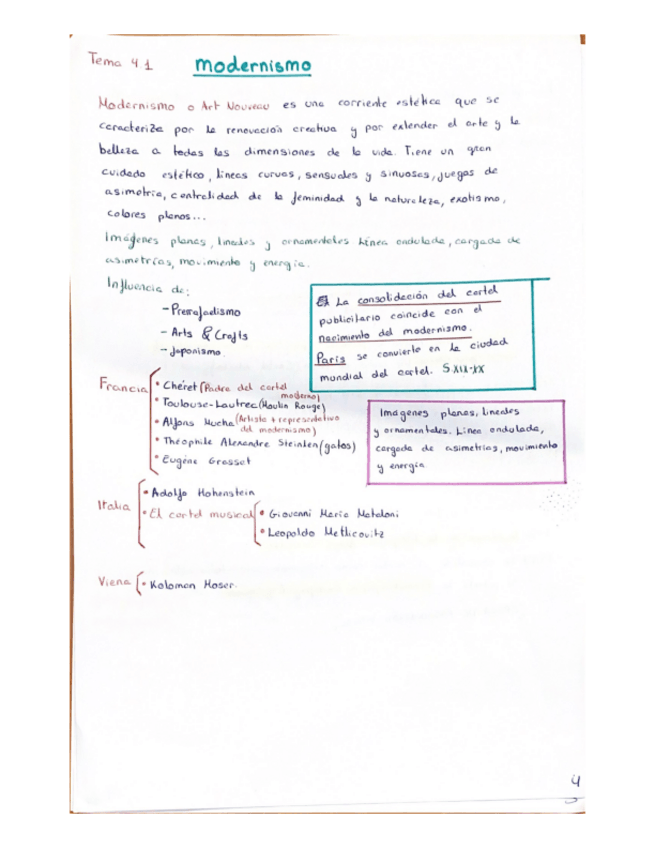 Tema 4 1
Modernismo
Modernismo o Art Nouveau es una corriente estética que se
caracteriza por la renovación creativa y por extender el arte y la
belleza a todas las dimensiones de la vida. Tiene un gran
cuidado estético, líneas curvas, sensuales y sinuosas, juegos de
asimetria, centralidad de la feminidad y la naturaleza, exotismo,
colores planos...
Imágenes planas, lineales y ornamentales Línea ondulada, cargada de
asimetrías, movimiento y energía.
Influencia de:
- Prerrafaelismo
- Arts & Crafts
- Japonismo
La consolidación del cartel
publicitario coincide con el
nacimiento del modernismo.
París se convierte en la ciudad
mundial del cartel. S XIX-XX
Francia
• Chéret (Padre del cartel
moderno)
• Toulouse-Lautrec (Moulin Rouge)
• Alfons Mucha (Artista + representativo
del modernismo)
• Théophile Alexandre Steinlen (gatos)
• Eugène Grasset
Imágenes planas, lineales
y ornamentales. Línea ondulada,
cargada de asimetrías, movimiento
y energía.
Italia
• Adolfo Hohenstein
• El cartel musical
• Giovanni Maria Mataloni
• Leopoldo Metlicovitz
Viena
• Koloman Moser.
4